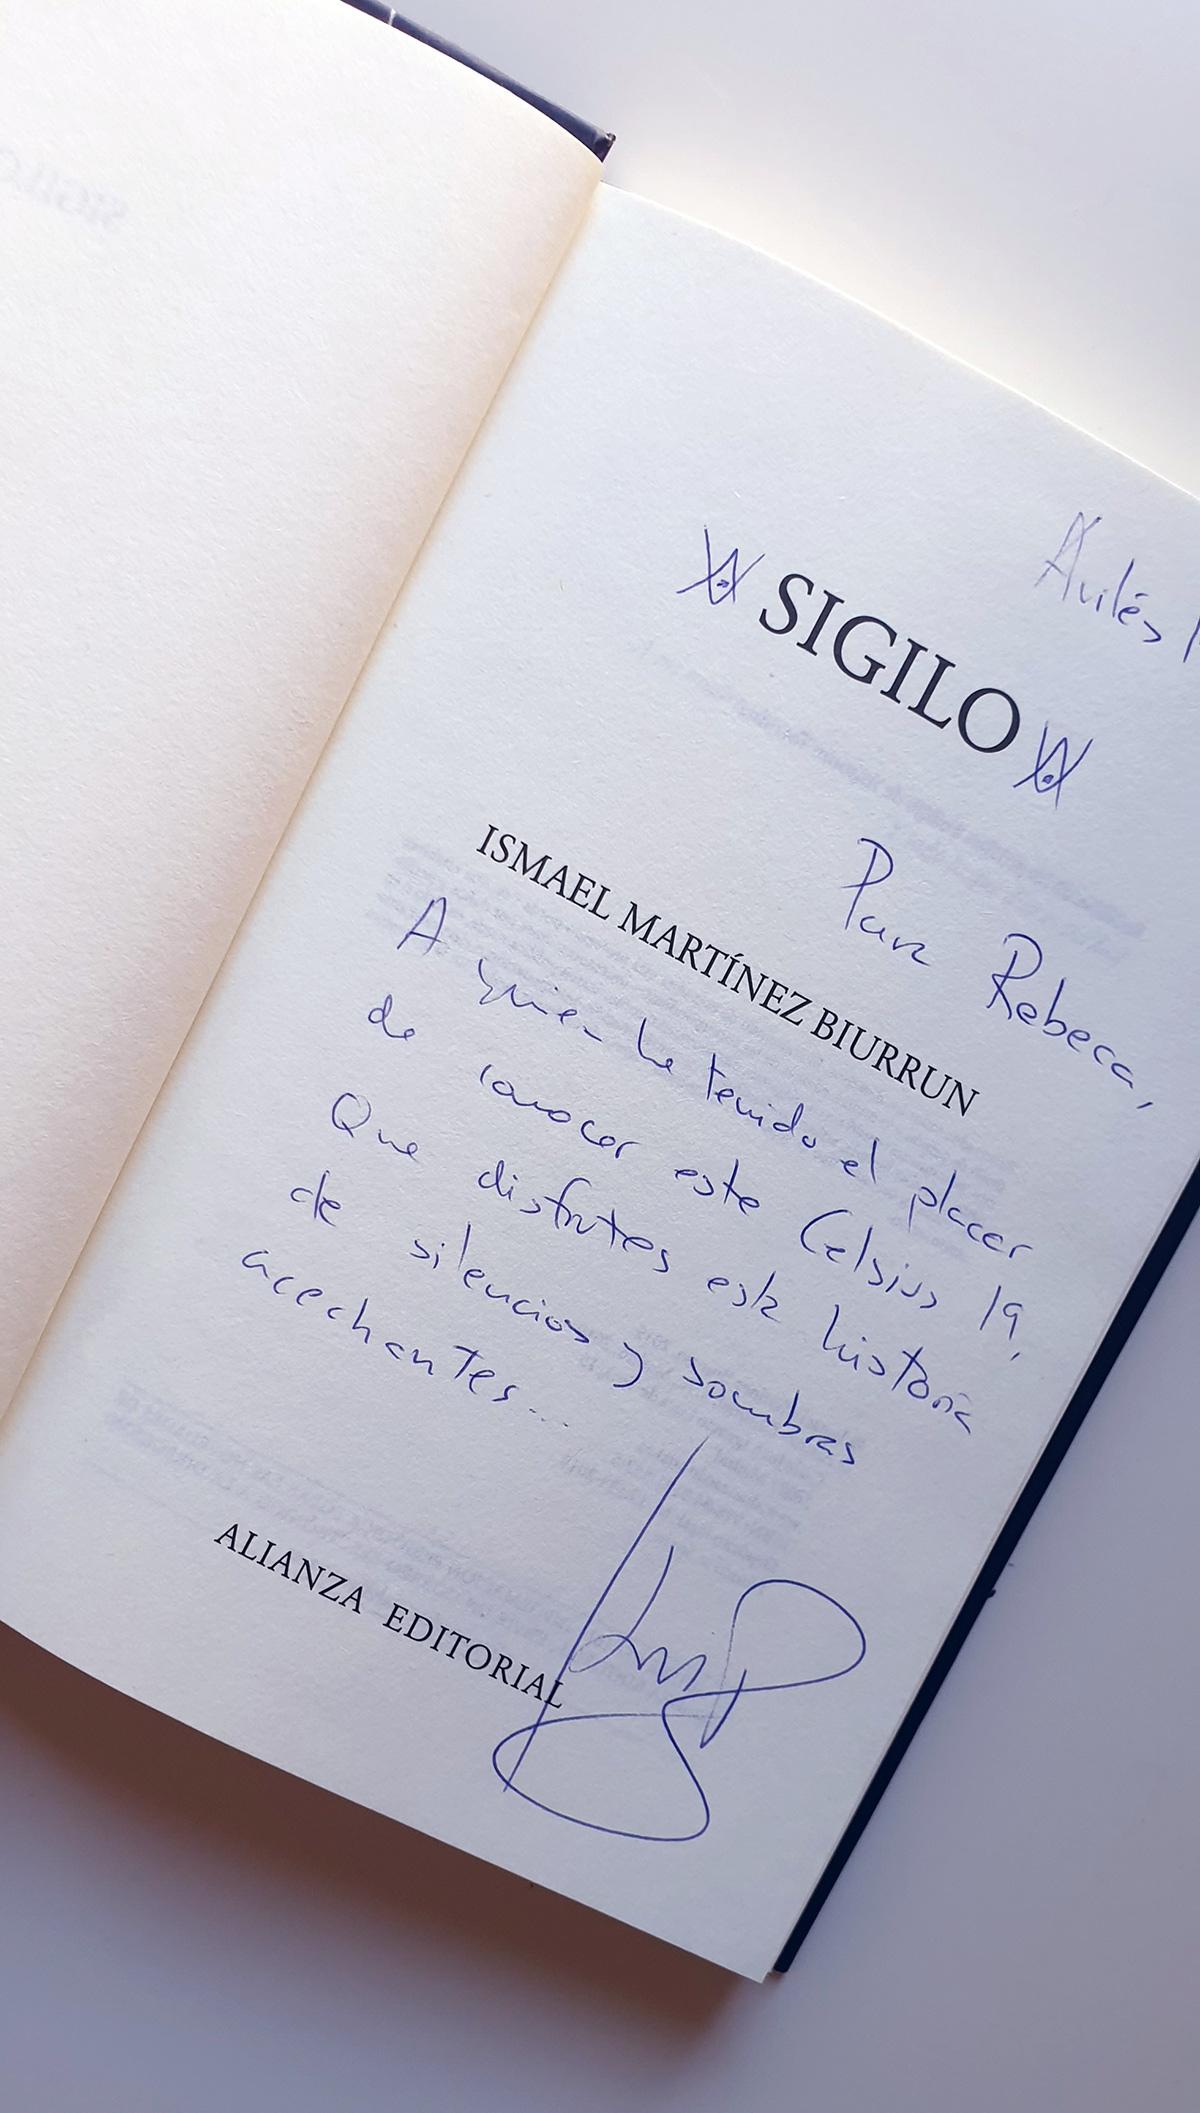 SIGILO
Avilés
SIGILO
Para Rebeca,
ISMAEL MARTÍNEZ BIURRUN
A quien he tenido el placer
de conocer este Celsius 19,
Que disfrutes esta historia
de silencios y sombras
acechantes...
ALIANZA EDITORIAL